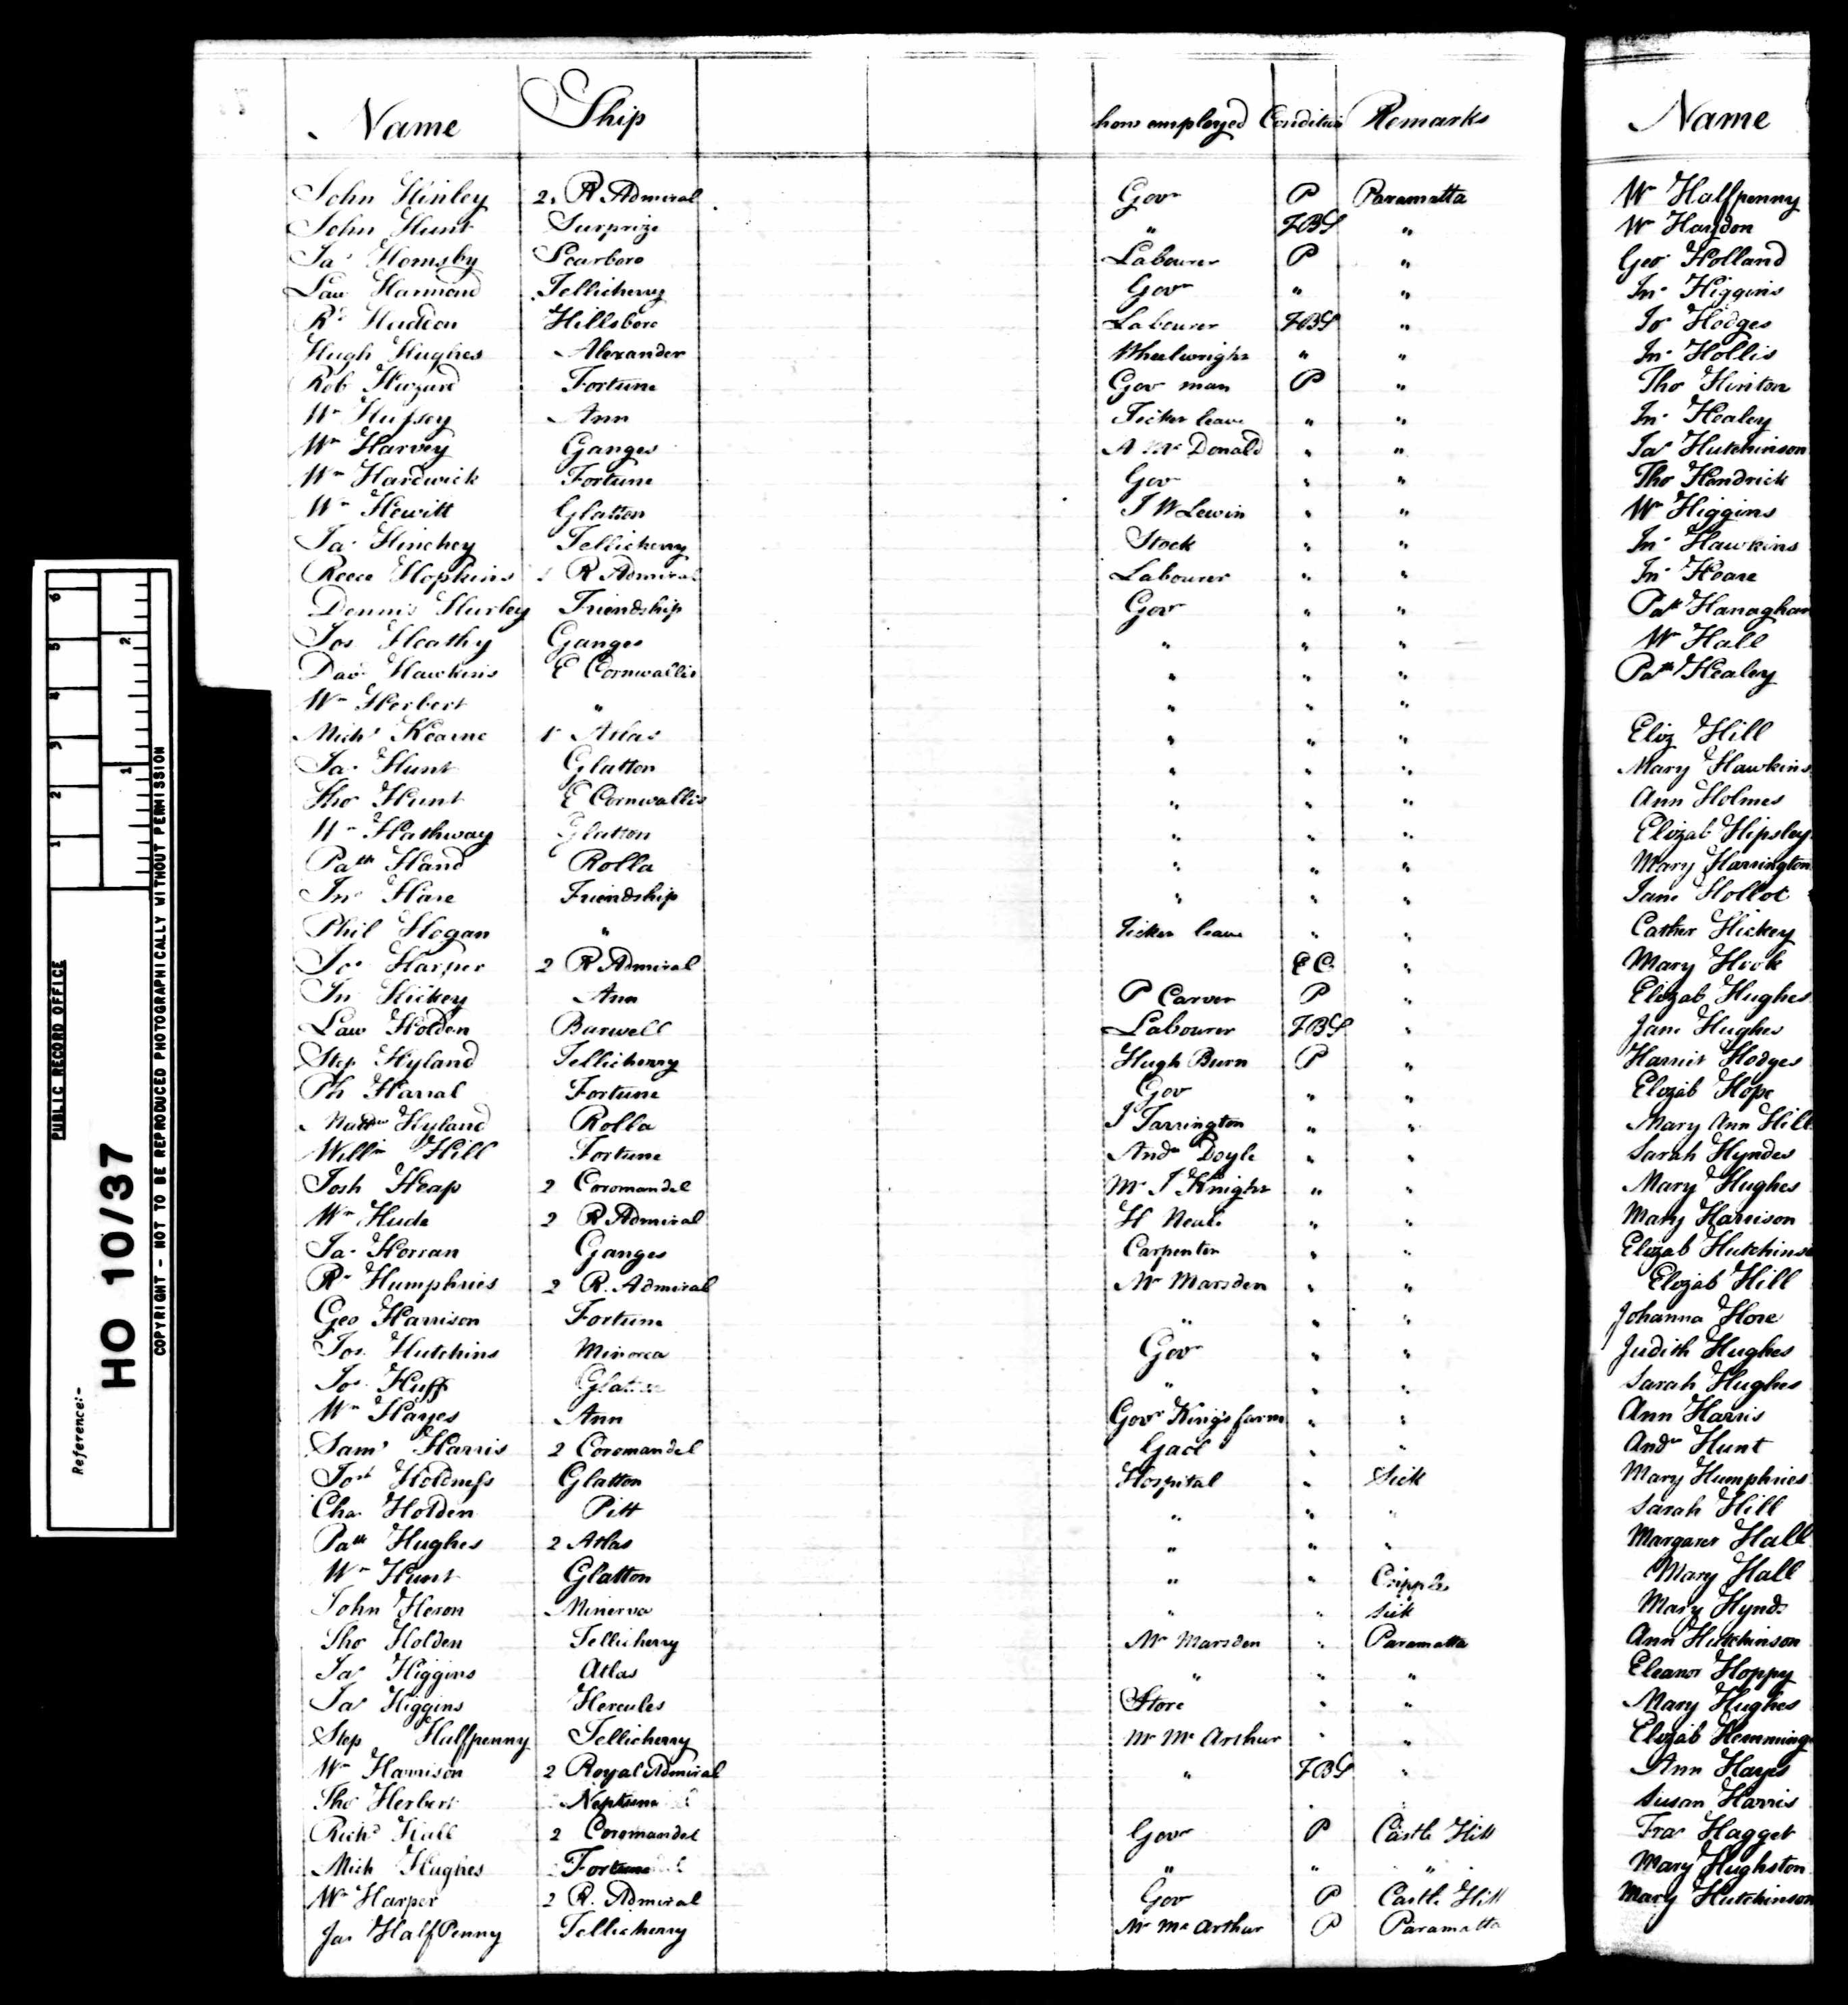 Name Ship how employed Condition Remarks
John Hinley 2. R Admiral Govr P Paramatta
John Hunt Surprize " FBS "
Jas Hornsby Scarboro Labourer P "
Law Harmond Tellicherry Govr " "
Rd Hudson Hillsboro Labourer FBS "
Hugh Hughes Alexander Wheelwright " "
Rob Hazard Fortune Govr man P "
Wm Ann Ticket leave " "
Wm Harvey Ganges A Mc Donald " "
Wm Hardwick Fortune Govr " "
Wm Hewitt Glatton J W Lewin " "
Jas Hinchey Tellicherry Stock " "
Reece Hopkins R Admiral Labourer " "
Dennis Hurley Friendship Govr " "
Jos Heathy Ganges " " "
Davd Hawkins E Cornwallis " " "
Wm Herbert " " " "
Michl Kearne 1st Atlas " " "
Jas Hunt Glatton " " "
Tho Hunt E Cornwallis " " "
Wm Hathway Glatton " " "
Patk Hand Rolla " " "
Jno Hare Friendship " " "
Phil Hogan " Ticket leave " "
Jos Harper 2 R Admiral EC "
Jn Hickey Ann P Carver P "
Law Holden Barwell Labourer FBS "
Step Hyland Tellicherry Hugh Burn P "
Ph Harral Fortune Gov " "
Mattw Hyland Rolla J Tarrington " "
Willm Hill Fortune Andw Doyle " "
Josh Heap 2 Coromandel Mr J Knight " "
Wm Hude 2 R Admiral H Neale " "
Jas Horran Ganges Carpenter " "
Rd Humphries 2 R. Admiral Mr Marsden " "
Geo Harrison Fortune " " "
Jos. Hutchins Minorca Govr " "
Jos Huff Glatton " " "
Wm Hayes Ann Govr Kings farm " "
Saml Harris 2 Coromandel Gaol " "
Josh Holdness Glatton Hospital " Sick
Cha Holden Pitt " " "
Patk Hughes 2 Atlas " " "
Wm Hunt Glatton " " Cripple
John Heron Minerva " " Sick
Tho Holden Tellicherry Mr Marsden " Paramatta
Jas Higgins Atlas " " "
Jas Higgins Hercules Store " "
Step Halfpenny Tellicherry Mr McArthur " "
Wm Harrison 2 Royal Admiral " FBS "
Tho Herbert Neptune
Richd Hall 2 Coromandel Govr P Castle Hill
Mich Hughes Fortune " " "
Wm Harper 2 R. Admiral Gov P Castle Hill
Jas HalfPenny Tellicherry Mr McArthur P Paramatta
Name
Wm Halfpenny
Wm Haydon
Geo Holland
Jno Higgins
Jo Hodges
Jno Hollis
Tho Hinton
Jno Healey
Jas Hutchinson
Tho Hendrick
Wm Higgins
Jno Hawkins
Jno Hoare
Patk Hanaghan
Wm Hall
Patk Healey
Eliz Hill
Mary Hawkins
Ann Holmes
Elizab Hipsley
Mary Harrington
Jane Hollot
Cathn Hickey
Mary Hook
Elizab Hughes
Jane Hughes
Harriot Hodges
Elizab Hope
Mary Ann Hill
Sarah Hyndes
Mary Hughes
Mary Harrison
Elizab Hutchins
Elizab Hill
Johanna Hore
Judith Hughes
Sarah Hughes
Ann Harris
Andw Hunt
Mary Humphries
Sarah Hill
Margaret Hall
Mary Hall
Mary Hynds
Ann Hutchinson
Eleanor Hoppy
Mary Hughes
Elizab Hemming
Ann Hayes
Susan Harris
Fras Hagget
Mary Hughston
Mary Hutchinson
PUBLIC RECORD OFFICE
Reference:-
HO 10/37
COPYRIGHT - NOT TO BE REPRODUCED PHOTOGRAPHICALLY WITHOUT PERMISSION
1 2 3 4 5 6
1 2